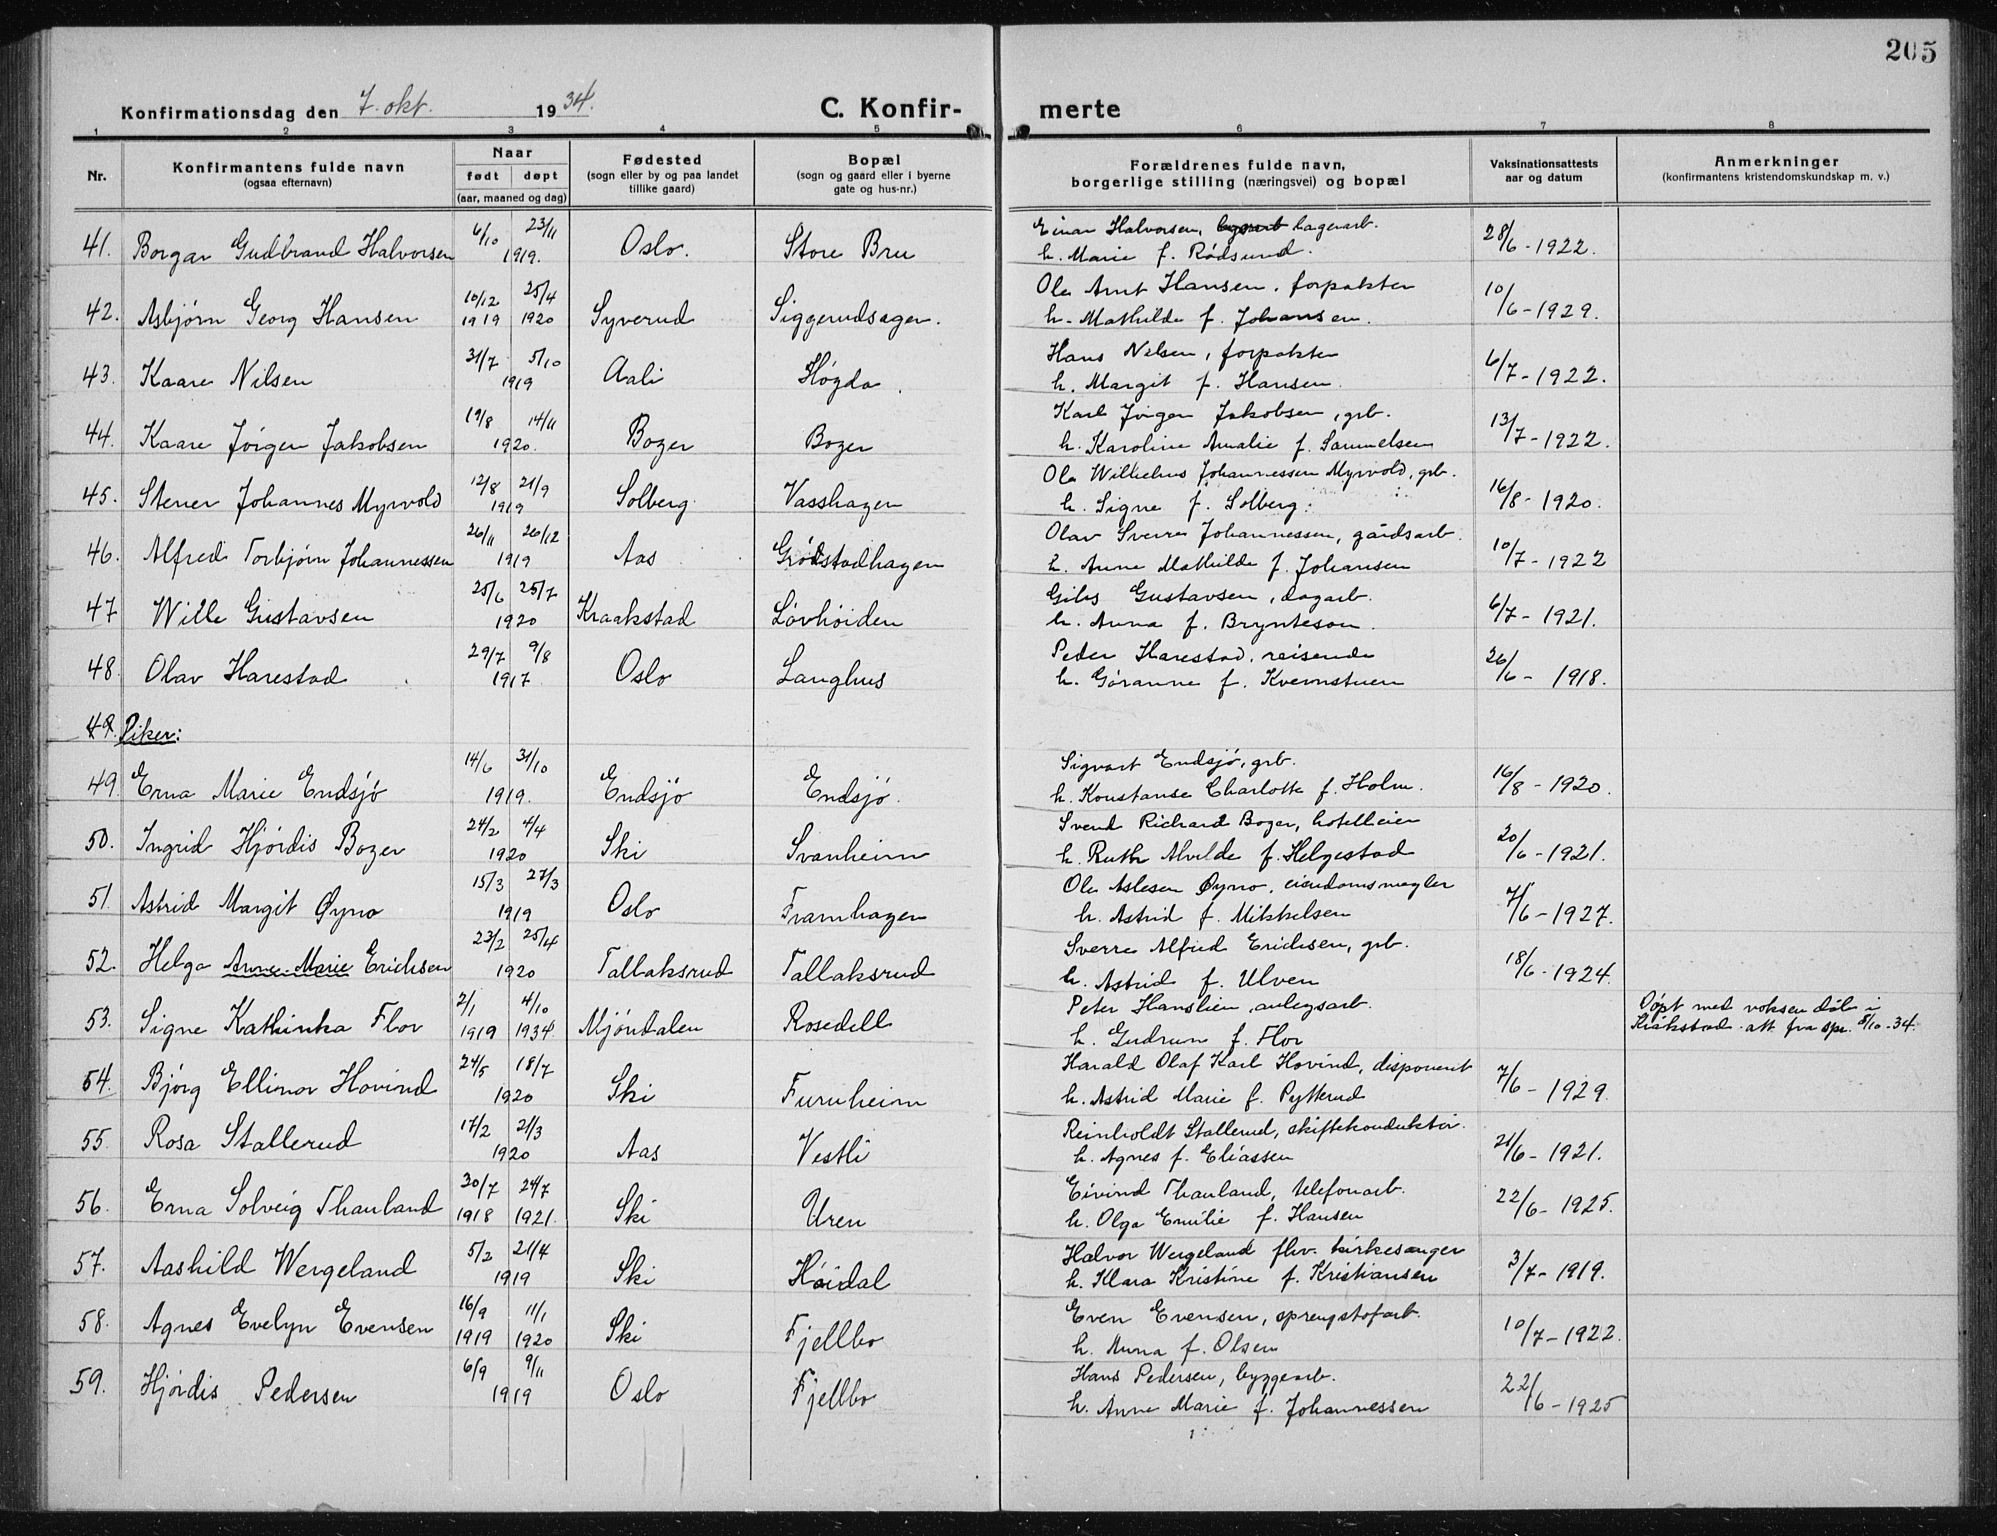 205
Konfirmationsdag den 7. okt. 1934. C. Konfirmerte
1 2 3 4 5 6 7 8
Nr. | Konfirmantens fulde navn (ogsaa efternavn) | Naar født døpt (aar, maaned og dag) | Fødested (sogn eller by og paa landet tillike gaard) | Bopæl (sogn og gaard eller i byerne gate og hus-nr.) | Forældrenes fulde navn, borgerlige stilling (næringsvei) og bopæl | Vaksinationsattests aar og datum | Anmerkninger (konfirmantens kristendomskundskap m. v.)
41. Borgar Gudbrand Halvorsen | 6/10 23/11 1919. | Oslo. | Store Bru | Einar Halvorsen, lagerarb. h. Marie f. Rödsund. | 28/6 - 1922.
42. Asbjørn Georg Hansen | 10/12 1919 25/4 1920 | Syverud | Siggerudsagen. | Ole Arnt Hansen, forpakter h. Mathilde f. Johansen. | 10/6 - 1929.
43. Kaare Nilsen | 31/7 5/10 1919 | Aali | Høgda. | Hans Nilsen, forpakter h. Margit f. Hansen. | 6/7 - 1922.
44. Kaare Jörgen Jakobsen | 19/8 14/11 1920. | Bøzer | Bozer | Karl Jörgen Jakobsen, grb. h. Karoline Amalie f. Samuelsen | 13/7 - 1922.
45. Stener Johannes Myrvold | 12/8 21/9 1919 | Solberg | Vasshagen | Ole Wilhelms Johannessen Myrvold, grb. h. Signe f. Solberg. | 16/8 - 1920.
46. Alfred Torbjørn Johannessen | 26/11 26/12 1919 | Aas | Grödstadhagen | Olav Sverre Johannessen, gårdsarb. h. Anne Mathilde f. Johansen | 10/7 - 1922
47 Wille Gustavsen | 25/6 25/7 1920 | Kraakstad | Lövhöiden | Giles Gustavsen, dagarb. h. Anna f. Brynteson. | 6/7 - 1921.
48. Olav Harestad | 29/7 9/8 1917 | Oslo | Langhus | Peder Harestad, reisende h. Göranne f. Kvernstuen | 26/6 - 1918.
49. Piker:
49. Erna Marie Endsjö | 14/6 31/10 1919. | Endsjö | Endsjö. | Sigvart Endsjö, grb. h. Konstanse Charlotte f. Holm. | 16/8 - 1920.
50. Ingrid Hjördis Bozer | 24/2 4/4 1920 | Ski | Svanheim | Svend Richard Bozer, hotelleier h. Ruth Alvilde f. Helgestad | 20/6 - 1921.
51. Astrid Margit Øyno | 15/3 27/3 1919 | Oslo | Framhagen | Ole Aslesen Øyno, eiendomsmegler h. Astrid f. Mikkelsen | 7/6 - 1927.
52. Helga Anne-Marie Erichsen | 23/2 25/4 1920 | Tallaksrud | Tallaksrud | Sverre Alfred Erichsen, grb. h. Astrid f. Ulven | 18/6 - 1924.
53. Signe Kathinka Flor | 2/1 1919 4/10 1934. | Mjöndalen | Rosedell | Peter Hanslien, anlegsarb. h. Gudrun f. Flor | Döpt med voksen dåb i Kråkstad. att fra spr. 8/10-34.
54. Bjørg Ellinor Hovind | 24/5 18/7 1920 | Ski | Furuheim | Harald Olaf Karl Hovind, disponent h. Astrid Marie f. Pytterud | 7/6 - 1929.
55. Rosa Stallerud | 17/2 21/3 1920 | Aas | Vestli | Reinholdt Stallerud, skiftekonduktör. h. Agnes f. Eliassen | 21/6 - 1921.
56. Erna Solveig Thauland | 30/7 1918 24/7 1921. | Ski | Uren | Eivind Thauland, telefonarb. h. Olga Emilie f. Hansen | 22/6 - 1925.
57. Aashild Wergeland | 5/2 21/4 1919 | Ski | Höidal | Halvor Wergeland fhv. kirkesanger h. Klara Kristine f. Kristiansen | 3/7 - 1919.
58. Agnes Evelyn Evensen | 16/9 1919 11/1 1920 | Ski | Fjellbo | Even Evensen, sprengstofarb. h. Anna f. Olsen | 10/7 - 1922.
59. Hjördis Pedersen | 6/9 9/11 1919 | Oslo | Fjellbo | Hans Pedersen, byggearb. h. Anne Marie f. Johannessen | 22/6 - 1925